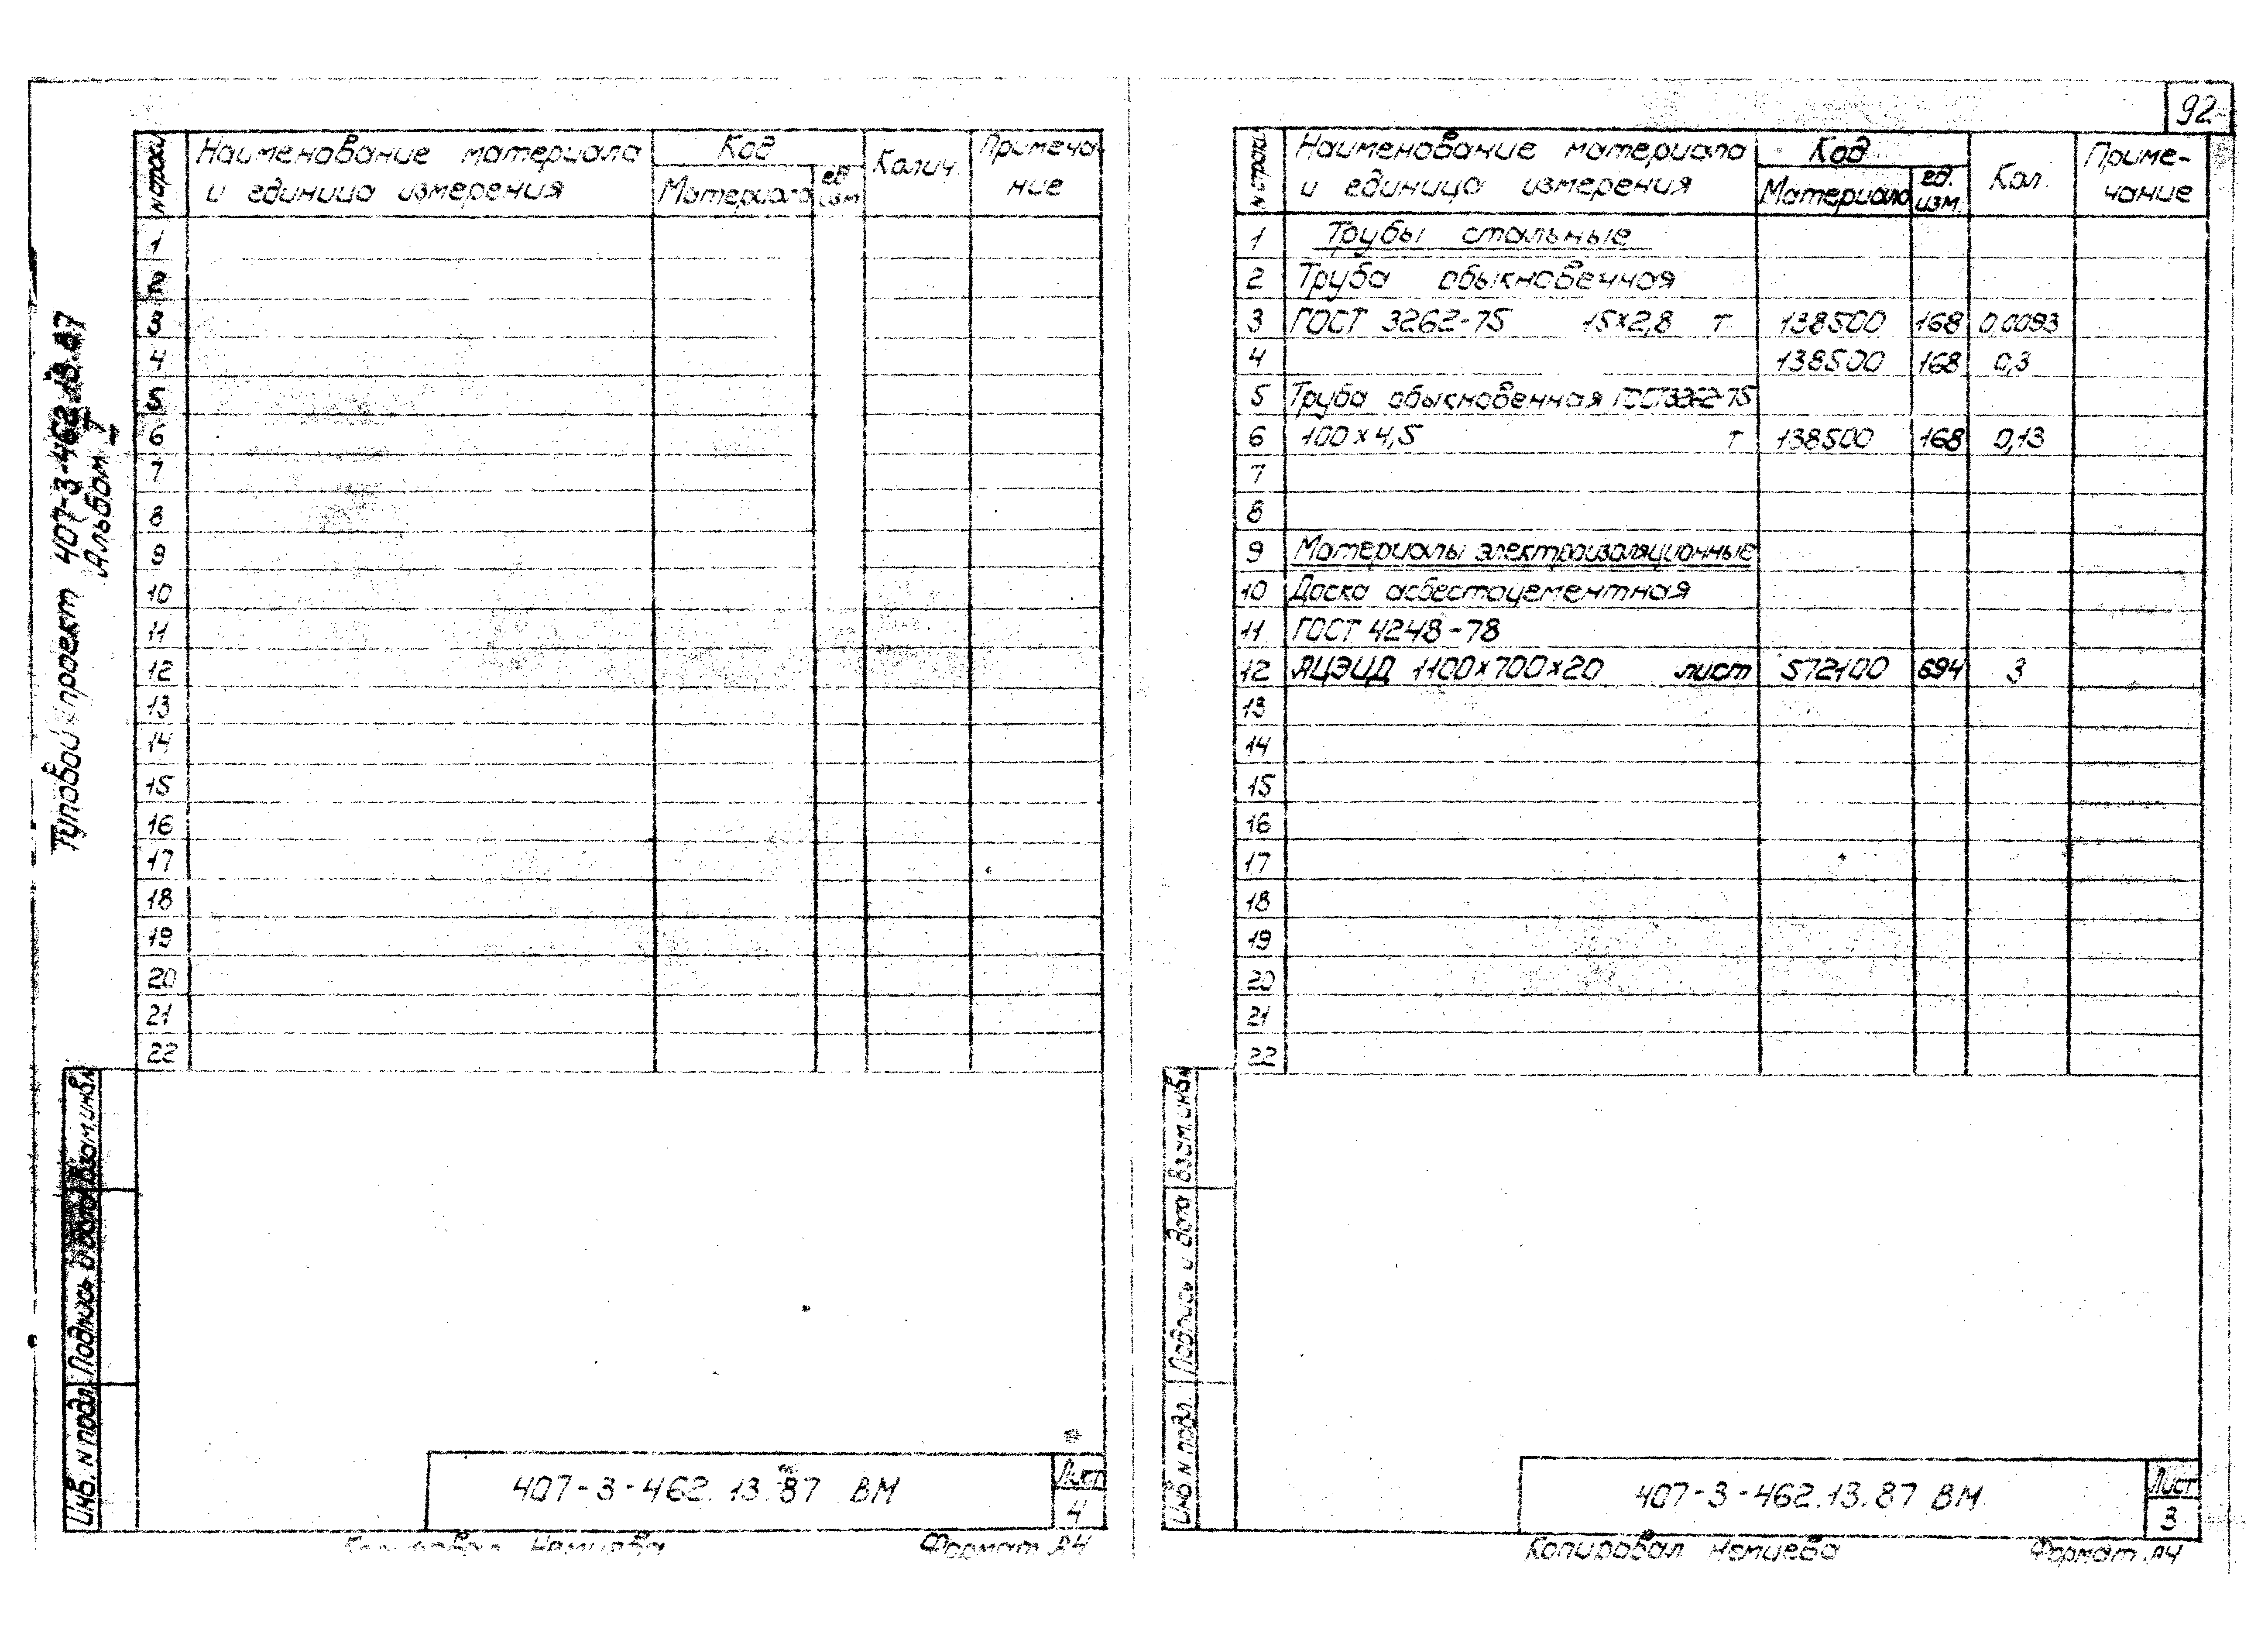 92
Типовой проект 407-3-462.13.87
Альбом I
N строки
Наименование материала
и единица измерения
Код
Материала
ед изм
Колич.
Примеча-
ние
1
2
3
4
5
6
7
8
9
10
11
12
13
14
15
16
17
18
19
20
21
22
Взам.инв.N
Подпись и дата
Инв. N подл.
407-3-462.13.87 ВМ
Лист
4
Копировал Немцева Формат А4
N строки
Наименование материала
и единица измерения
Код
Материала
ед.
изм.
Кол.
Приме-
чание
1 Трубы стальные
2 Труба обыкновенная
3 ГОСТ 3262-75 15×2,8 т 138500 168 0,0093
4 138500 168 0,3
5 Труба обыкновенная ГОСТ3262-75
6 100×4,5 т 138500 168 0,13
7
8
9 Материалы электроизоляционные
10 Доска асбестоцементная
11 ГОСТ 4248-78
12 АЦЭИД 1100×700×20 лист 572100 694 3
13
14
15
16
17
18
19
20
21
22
Взам. инв.N
Подпись и дата
Инв. N подл.
407-3-462.13.87 ВМ
Лист
3
Копировал Немцева Формат А4